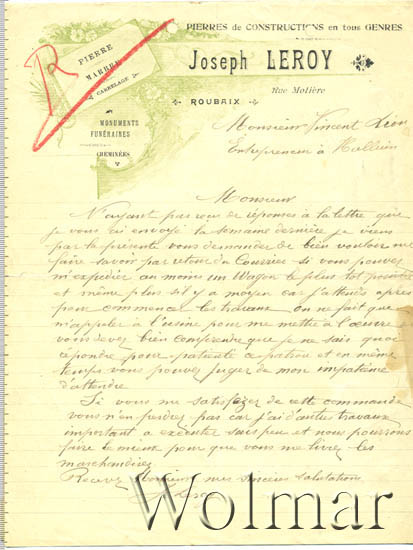 PIERRES de CONSTRUCTIONS en tous GENRES
R
PIERRE
MARBRE
CARRELAGE
Joseph LEROY
Rue Molière
ROUBAIX
MONUMENTS
FUNÉRAINES
CHEMINÉES
Monsieur Vincent
Entrepreneur à Halluin
Monsieur
N'ayant pas reçu de réponses à la lettre que
je vous ai envoyé la semaine dernière je viens
par la présente vous demander de bien vouloir me
faire savoir par retour du Courrier si vous pouvez
m'expédier au moins un Wagon le plus tot possible
et même plus s'il y a moyen car j'attends après
pour commencer les travaux on ne fait que
m'appeler à l'usine pour me mettre à l'œuvre
vous devez bien comprendre que je ne sais quoi
répondre pour patienté ce patron et en même
temps vous pouvez juger de mon impatience
d'attendre
Si vous me satisfezez de cette commande
vous n'en perdrez pas car j'ai d'autres travaux
important a exécuter sous peu et nous pourrons
faire le mieux pour que vous me livrez les
marchandises
Recevez Monsieur mes sincères salutations
Wolmar